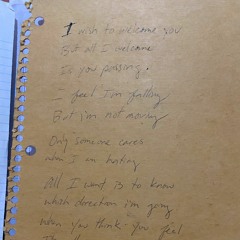 I wish to welcome you
But all I welcome
Is you passing.
I feel I'm falling
But i'm not moving
Only someone cares
when I am hurting
All I want is to know
which direction i'm going
when you think you feel